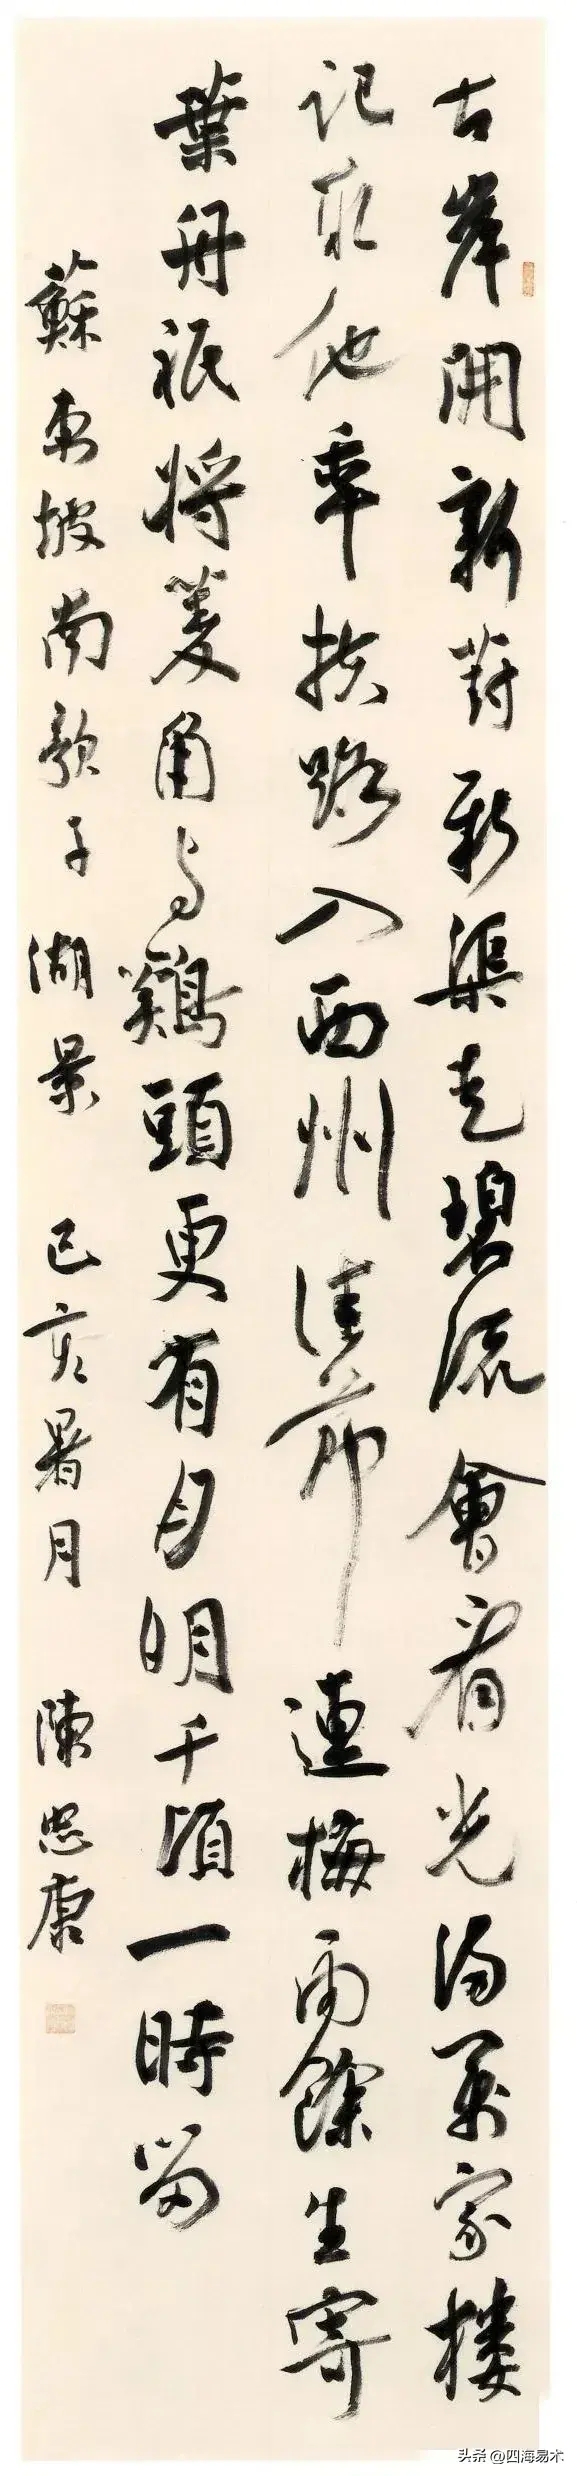 古岸開新葑新渠走碧流會看光滿萬家樓
記取他年扶路入西州佳節連梅雨餘生寄
葉舟祇將菱角与鷄頭更有月明千頃一時留
蘇東坡南歌子湖景 己亥暑月 陳忠康
头条 @四海易术